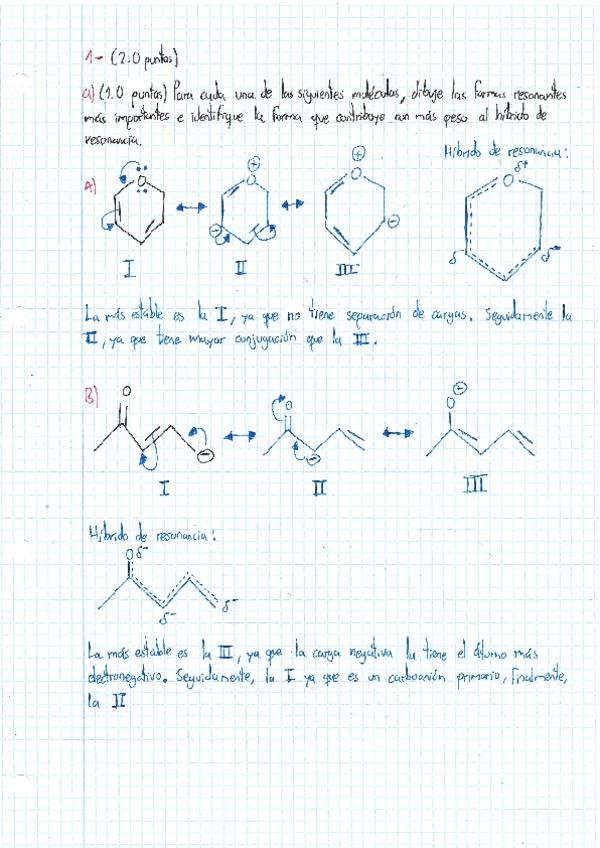 1- (2.0 puntos)
a) (1.0 puntos) Para cada una de las siguientes moléculas, dibuje las formas resonantes
más importantes e identifique la forma que contribuye con más peso al híbrido de
resonancia.
Híbrido de resonancia:
A)
O
⊕
O
⊕
O
δ+
O
⊖
⊖
δ-
δ-
I
II
III
La más estable es la I, ya que no tiene separación de cargas. Seguidamente la
II, ya que tiene mayor conjugación que la III.
B)
O
O
⊖
O
⊖
⊖
I
II
III
Híbrido de resonancia:
O δ-
δ-
δ-
La más estable es la III, ya que la carga negativa la tiene el átomo más
electronegativo. Seguidamente, la I ya que es un carboanión primario, finalmente,
la II